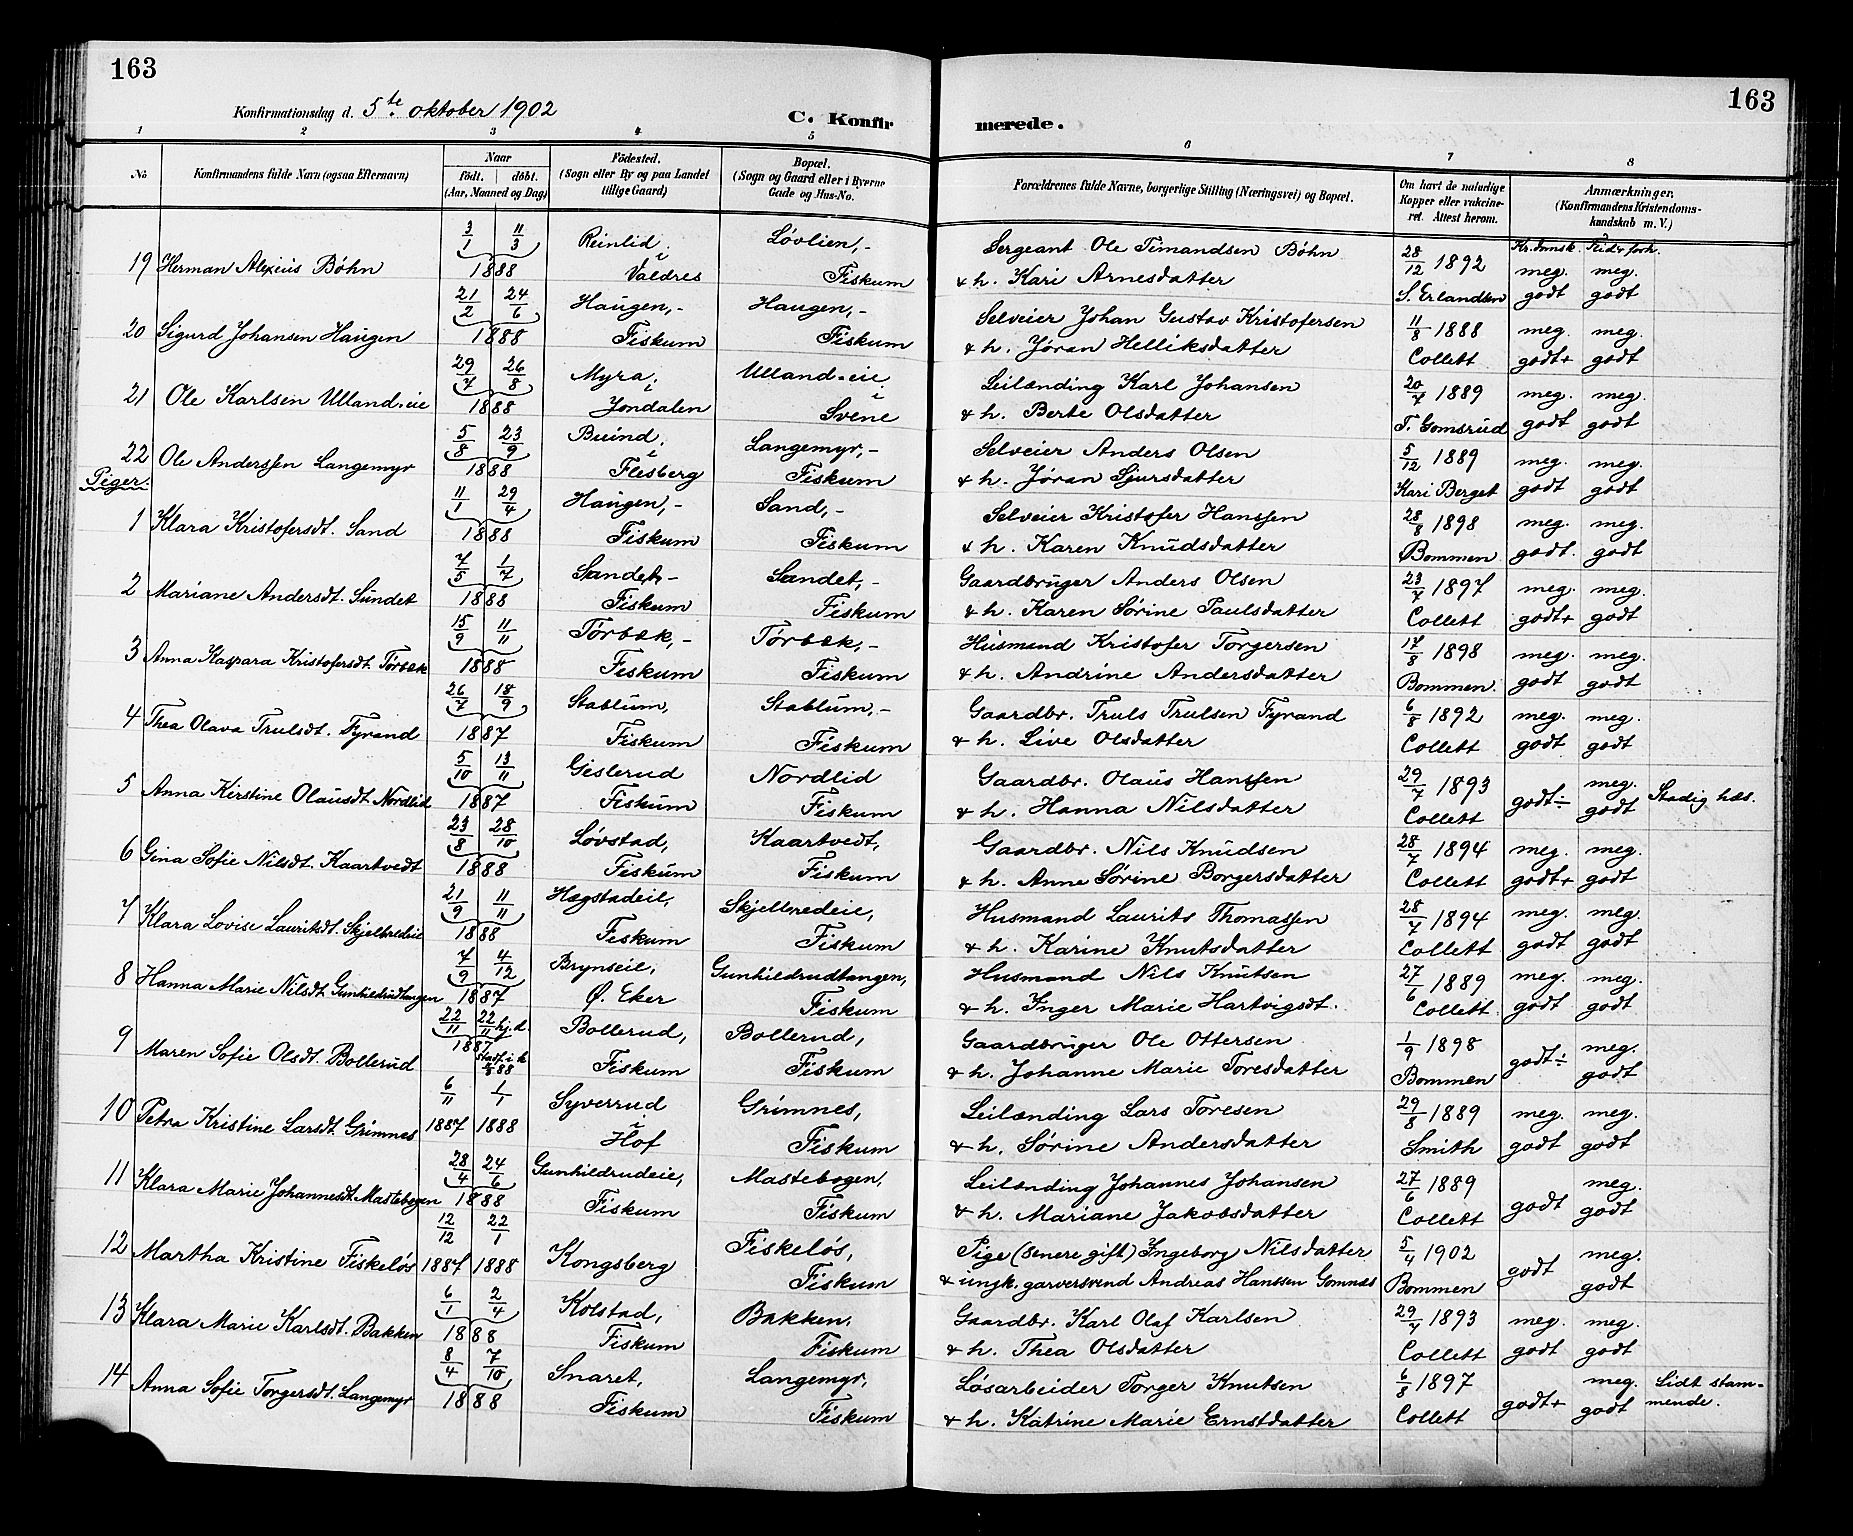 163
163
Konfirmationsdag d. 5te oktober 1902
C. Konfirmerede.
1 2 3 4 5 6 7 8
No
Konfirmandens fulde Navn (ogsaa Efternavn)
Naar
födt. döbt.
(Aar, Maaned og Dag)
Födested.
(Sogn eller By og paa Landet
tillige Gaard)
Bopæl.
(Sogn og Gaard eller i Byerne
Gade og Hus-No.
Forældrenes fulde Navne, borgerlige Stilling (Næringsvei) og Bopæl.
Om havt de naturlige
Kopper eller vaccine-
ret. Attest herom.
Anmærkninger.
(Konfirmandens Kristendoms-
kundskab m. V.)
3/1 11/3 Reinlid, Løvlien,- Sergeant Ole Timandsen Bøhn 28/12 1892 meg. meg.
19 Herman Alexius Bøhn 1888 i Valdres Fiskum & h. Kari Arnesdatter S. Erlandsen godt godt
21/2 24/6 Haugen,- Haugen,- Selveier Johan Gustav Kristofersen 11/8 1888 meg. meg.
20 Sigurd Johansen Haugen 1888 Fiskum Fiskum & h. Jøran Helliksdatter Collett godt+ godt
29/7 26/8 Myra, Ulland-eie Leilænding Karl Johansen 20/7 1889 meg. meg.
21 Ole Karlsen Ulland-eie 1888 i Jondalen i Svene & h. Berte Olsdatter T. Gomsrud godt godt
5/8 23/9 Buind, Langemyr,- Selveier Anders Olsen 5/12 1889 meg. meg.
22 Ole Anderssen Langemyr 1888 i Flesberg Fiskum & h. Jøran Sjursdatter Kari Berget godt godt
Piger:
11/1 29/4 Haugen,- Sand,- Selveier Kristofer Hanssen 28/8 1898 meg. meg.
1 Klara Kristofersdt. Sand 1888 Fiskum Fiskum & h. Karen Knudsdatter Bommen godt. godt
7/5 1/7 Sandet,- Sandet,- Gaardbruger Anders Olsen 23/7 1897 meg. meg.
2 Mariane Andersdt. Sundet 1888 Fiskum Fiskum & h. Karen Sørine Paulsdatter Collett godt+ godt
15/9 11/11 Tørbæk,- Tørbæk,- Husmand Kristofer Torgersen 17/8 1898 meg. meg.
3 Anna Kaspara Kristofersdt. Tørbæk 1888 Fiskum Fiskum & h. Andrine Andersdatter Bommen. godt godt
26/7 18/9 Stablum, Stablum,- Gaardbr. Truls Trulsen Fyrand 6/8 1892 meg. meg.
4 Thea Olava Trulsdt. Fyrand 1887 Fiskum Fiskum & h. Live Olsdatter Collett godt godt
5/10 13/11 Gislerud Nordlid Gaardbr. Olaus Hanssen 29/7 1893 meg.
5 Anna Kirstine Olausdt. Nordlid 1887 Fiskum Fiskum & h. Hanna Nilsdatter Collett godt÷ godt Stadig hæs.
23/8 28/10 Løvstad, Kaartvedt, Gaardbr. Nils Knudsen 28/7 1894 meg. meg.
6 Gina Sofie Nilsdt. Kaartvedt 1888 Fiskum Fiskum & h. Anne Sørine Borgersdatter Collett godt+ godt
21/9 11/11 Hægstadeie, Skjelbredeie, Husmand Laurits Thomassen 28/7 1894 meg. meg.
7 Klara Lovise Lauritsdt. Skjelbredeie 1888 Fiskum Fiskum & h. Karine Knutsdatter Collett godt godt
7/9 4/12 Brynseie, Gunhildrudtangen, Husmand Nils Knutsen 27/6 1889 meg. meg.
8 Hanna Marie Nilsdt. Gunhildrudtangen 1887 Ø. Eker Fiskum & h. Inger Marie Hartvigsdt. Collett godt godt
22/11 22/11 hj.d. Bollerud, Bollerud, Gaardbruger Ole Ottersen 1/9 1898 meg.
9 Maren Sofie Olsdt. Bollerud 1887 stadf. i k 88 Fiskum Fiskum & h. Johanne Marie Toresdatter Bommen godt÷ godt
6/11 1/1 Syverrud Grimnes, Leilænding Lars Toresen 29/8 1889 meg. meg.
10 Petra Kristine Larsdt. Grimnes 1887 1888 i Hof Fiskum & h. Sørine Andersdatter Smith godt godt
28/4 24/6 Gunhildrudeie, Mastebogen, Leilænding Johannes Johansen 27/6 1889 meg.
11 Klara Marie Johannesdt. Mastebogen 1888 Fiskum Fiskum & h. Mariane Jakobsdatter Collett godt godt
12/12 22/1 Fiskeløs, Pige (senere gift) Ingeborg Nilsdatter 5/4 1902 meg.
12 Martha Kristine Fiskeløs 1887 1888 Kongsberg Fiskum & ungk. garversvend Andreas Hanssen Gomnæs Bommen godt godt
6/1 2/4 Kolstad, Bakken, Gaardbr. Karl Olaf Karlsen 29/7 1893 meg. meg.
13 Klara Marie Karlsdt. Bakken 1888 Fiskum Fiskum & h. Thea Olsdatter Collett godt godt
8/4 7/10 Snaret, Langemyr, Løsarbeider Torger Knutsen 6/8 1897 meg. Lidt stam-
14 Anna Sofie Torgersdt. Langemyr 1888 Fiskum Fiskum & h. Katrine Marie Ernstdatter Collett godt+ godt mende.